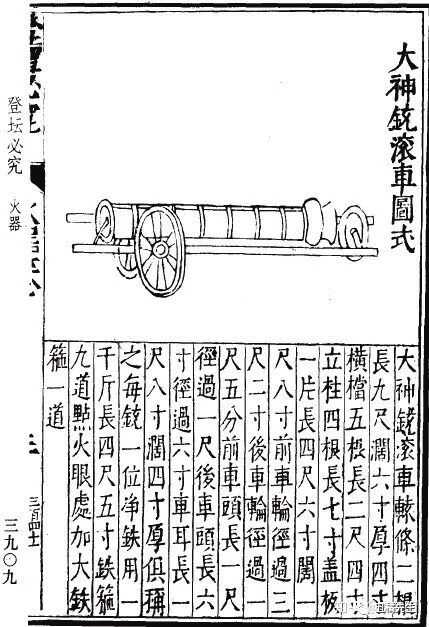 大神銃滚車圖式
大神銃滚車轅條二根
長九尺濶六寸厚四寸
橫檔五根長二尺四寸
立柱四根長七寸盖板
一片長四尺六寸闊一
尺八寸前車輪徑過三
尺二寸後車輪徑過一
尺五分前車頭長一尺
徑過一尺後車頭長六
寸徑過六寸車耳長一
尺八寸濶四寸厚俱稱
之每銃一位净鉄用一
千斤長四尺五寸鉄箍
九道點火眼處加大鉄
箍一道
登坛必究 火器
三九〇九